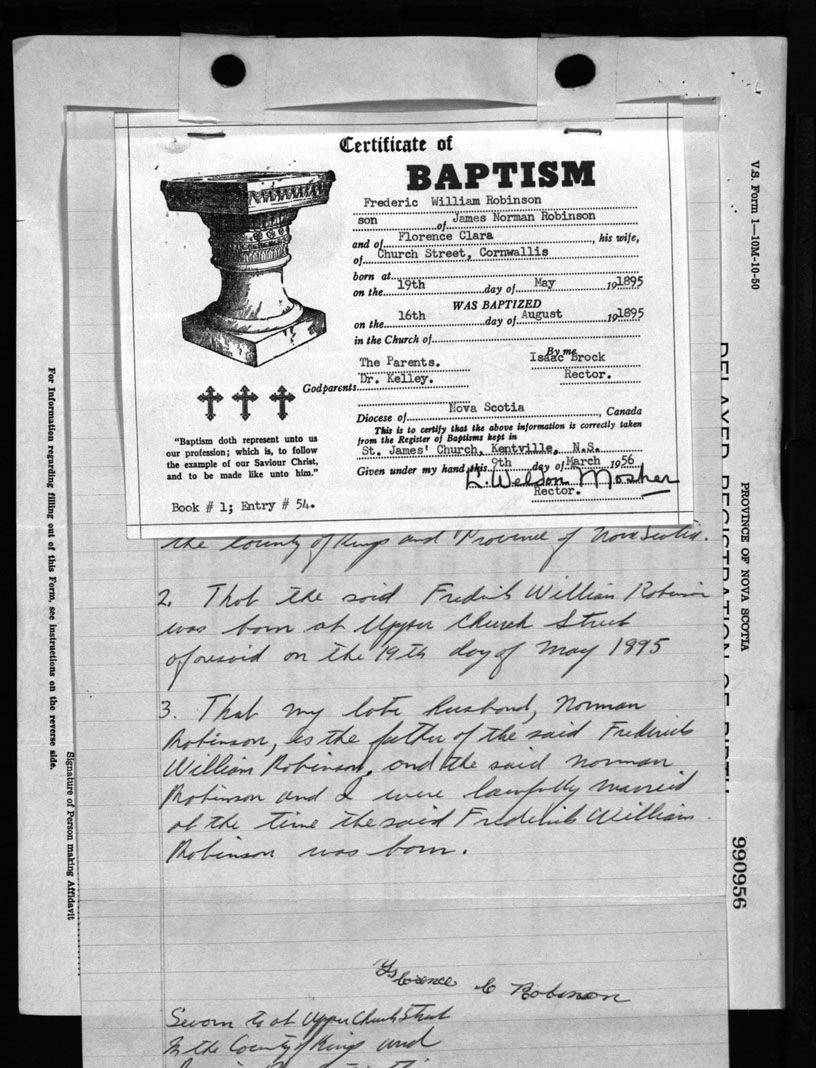 Certificate of
BAPTISM
Frederic William Robinson
son of James Norman Robinson
and of Florence Clara, his wife,
of Church Street, Cornwallis
born at
on the 19th day of May 191895
WAS BAPTIZED
on the 16th day of August 191895
in the Church of
By me
The Parents. Isaac Brock
Dr. Kelley. Rector.
Godparents
Diocese of Nova Scotia, Canada
This is to certify that the above information is correctly taken
from the Register of Baptisms kept in
St. James' Church, Kentville, N.S.
Given under my hand this 9th day of March 1956
L. Weldon Mosher
Rector.
"Baptism doth represent unto us
our profession; which is, to follow
the example of our Saviour Christ,
and to be made like unto him."
Book # 1; Entry # 54.
the County of Kings and Province of Nova Scotia.
2. That the said Fredrik William Robinson
was born at Upper Church Street
aforesaid on the 19th day of May 1895
3. That my late husband, Norman
Robinson, is the father of the said Frederick
William Robinson, and the said Norman
Robinson and I were lawfully married
at the time the said Frederick William
Robinson was born.
Florence C Robinson
Sworn to at Upper Church Street
In the County of Kings and
V.S. Form 1—10M-10-50
PROVINCE OF NOVA SCOTIA
DELAYED REGISTRATION OF BIRTH
990956
For Information regarding filling out of this Form, see instructions on the reverse side.
Signature of Person making Affidavit